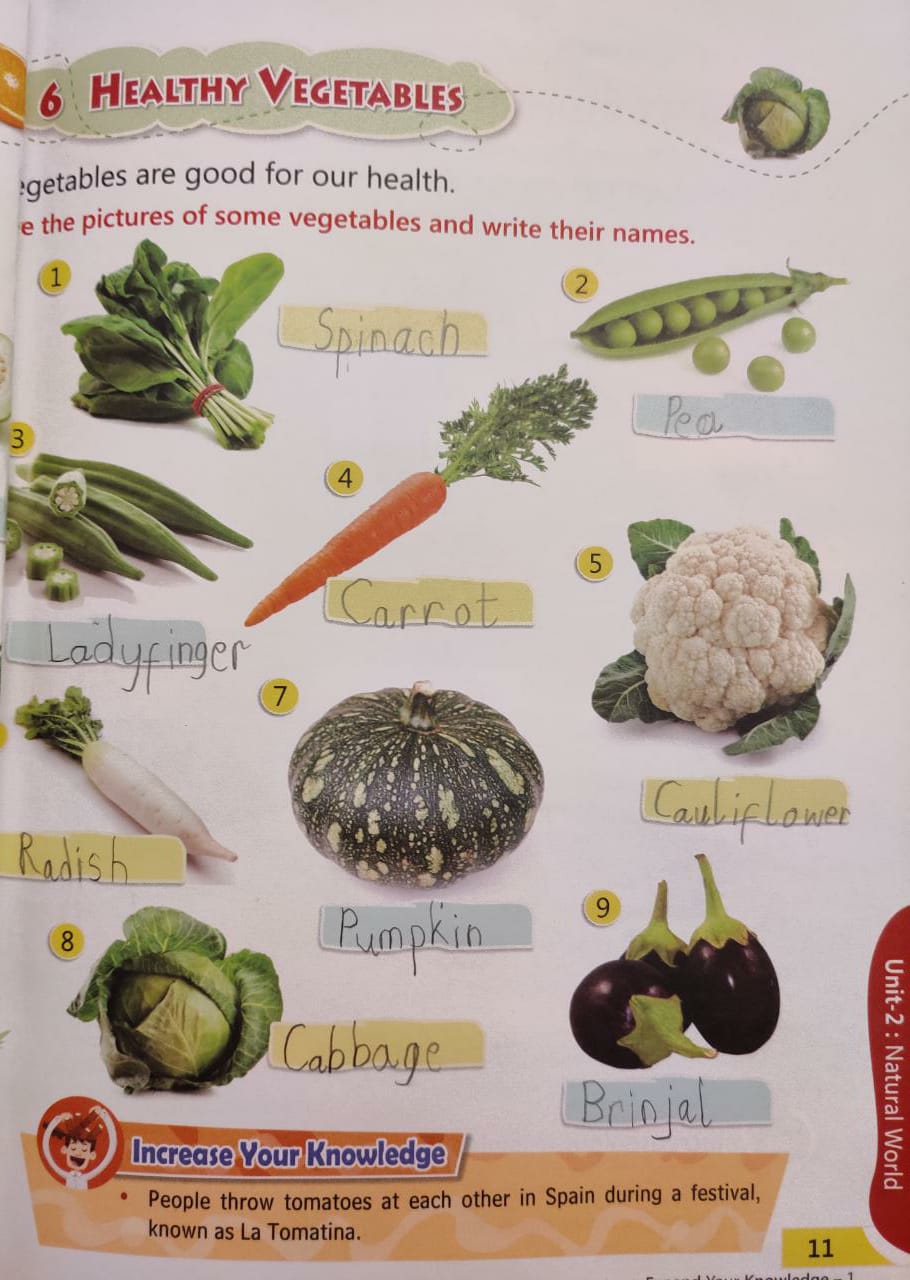 6 HEALTHY VEGETABLES
egetables are good for our health.
e the pictures of some vegetables and write their names.
1
Spinach
2
Pea
3
Ladyfinger
4
Carrot
5
Cauliflower
Radish
7
Pumpkin
8
Cabbage
9
Brinjal
Unit-2 : Natural World
Increase Your Knowledge
• People throw tomatoes at each other in Spain during a festival,
known as La Tomatina.
11
Your Knowledge – 1